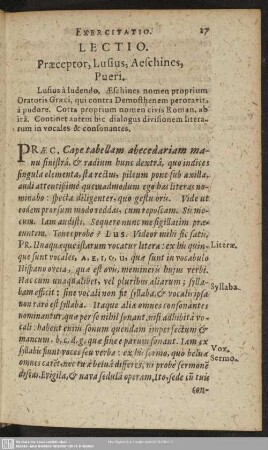 EXERCITATIO. 17
LECTIO.
Præceptor, Lusius, Aeschines,
Pueri.
Lusius à ludendo. Æschines nomen proprium
Oratoris Græci, qui contra Demosthenem peroravit,
à pudore. Cotta proprium nomen civis Roman. ab
irâ. Continet autem hic dialogus divisionem litera-
rum in vocales & consonantes.
PRÆC. Cape tabellam abecedariam ma-
nu sinistrâ, & radium hunc dextrâ, quo indices
singula elementa, sta rectus, pileum pone sub axilla,
audi attentissimè quemadmodum ego has literas no-
minabo: specta diligenter, quo gestu oris. Vide ut
eodem prorsum modo reddas, cum reposcam. Sis me-
cum. Iam audisti. Sequere nunc me sigillatim præ-
euntem. Tenes probe? LUS. Videor mihi sic satis,
PR. Unaquæque istarum vocatur litera: ex his quin-
que sunt vocales, A, E, I, O, U, quæ sunt in vocabulo
Hispano oveia, quæ est ovis, memineris hujus verbi.
Hæ cum unaqualibet, vel pluribus aliarum; sylla-
bam efficit: sine vocali non fit syllaba, & vocalis ipsa
non rarò est syllaba. Itaque aliæ omnes consonantes
nominantur, quæ per se nihil sonant, nisi adhibitâ vo-
cali: habent enim sonum quendam imperfectum &
mancum, b, c, d, g, quæ sine e parum sonant. Iam ex
syllabis fiunt voces seu verba: ex his sermo, quo beluæ
omnes caret, nec tu à belua differes, ni probè sermonè
discas, Evigila, & nava sedulò operam, Ito, sede cũ tuis
con-
Literæ.
Syllaba.
Vox,
Sermo.